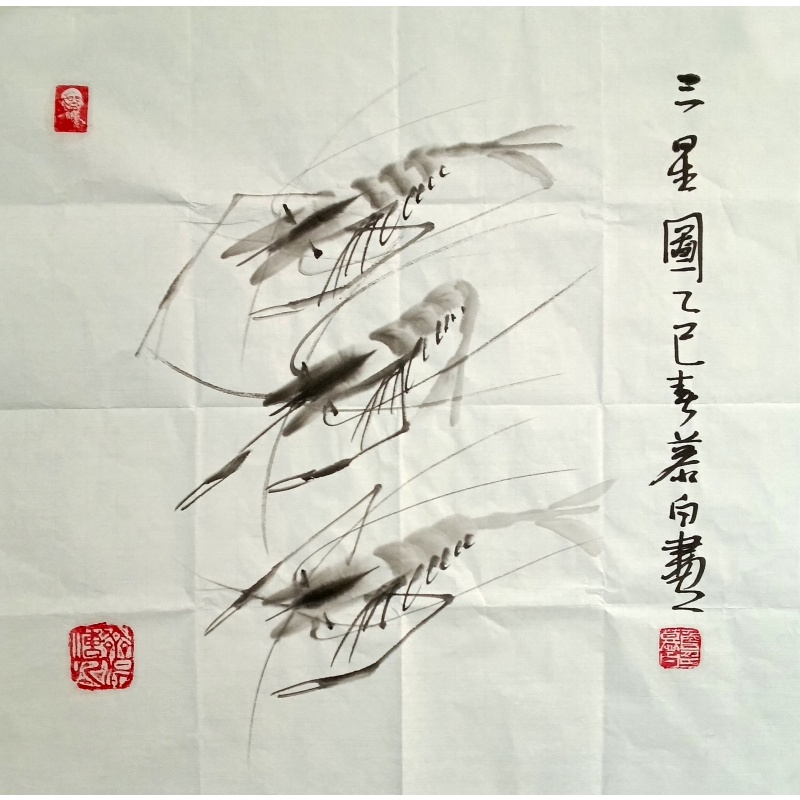 三星圖乙巳春慕白畫之